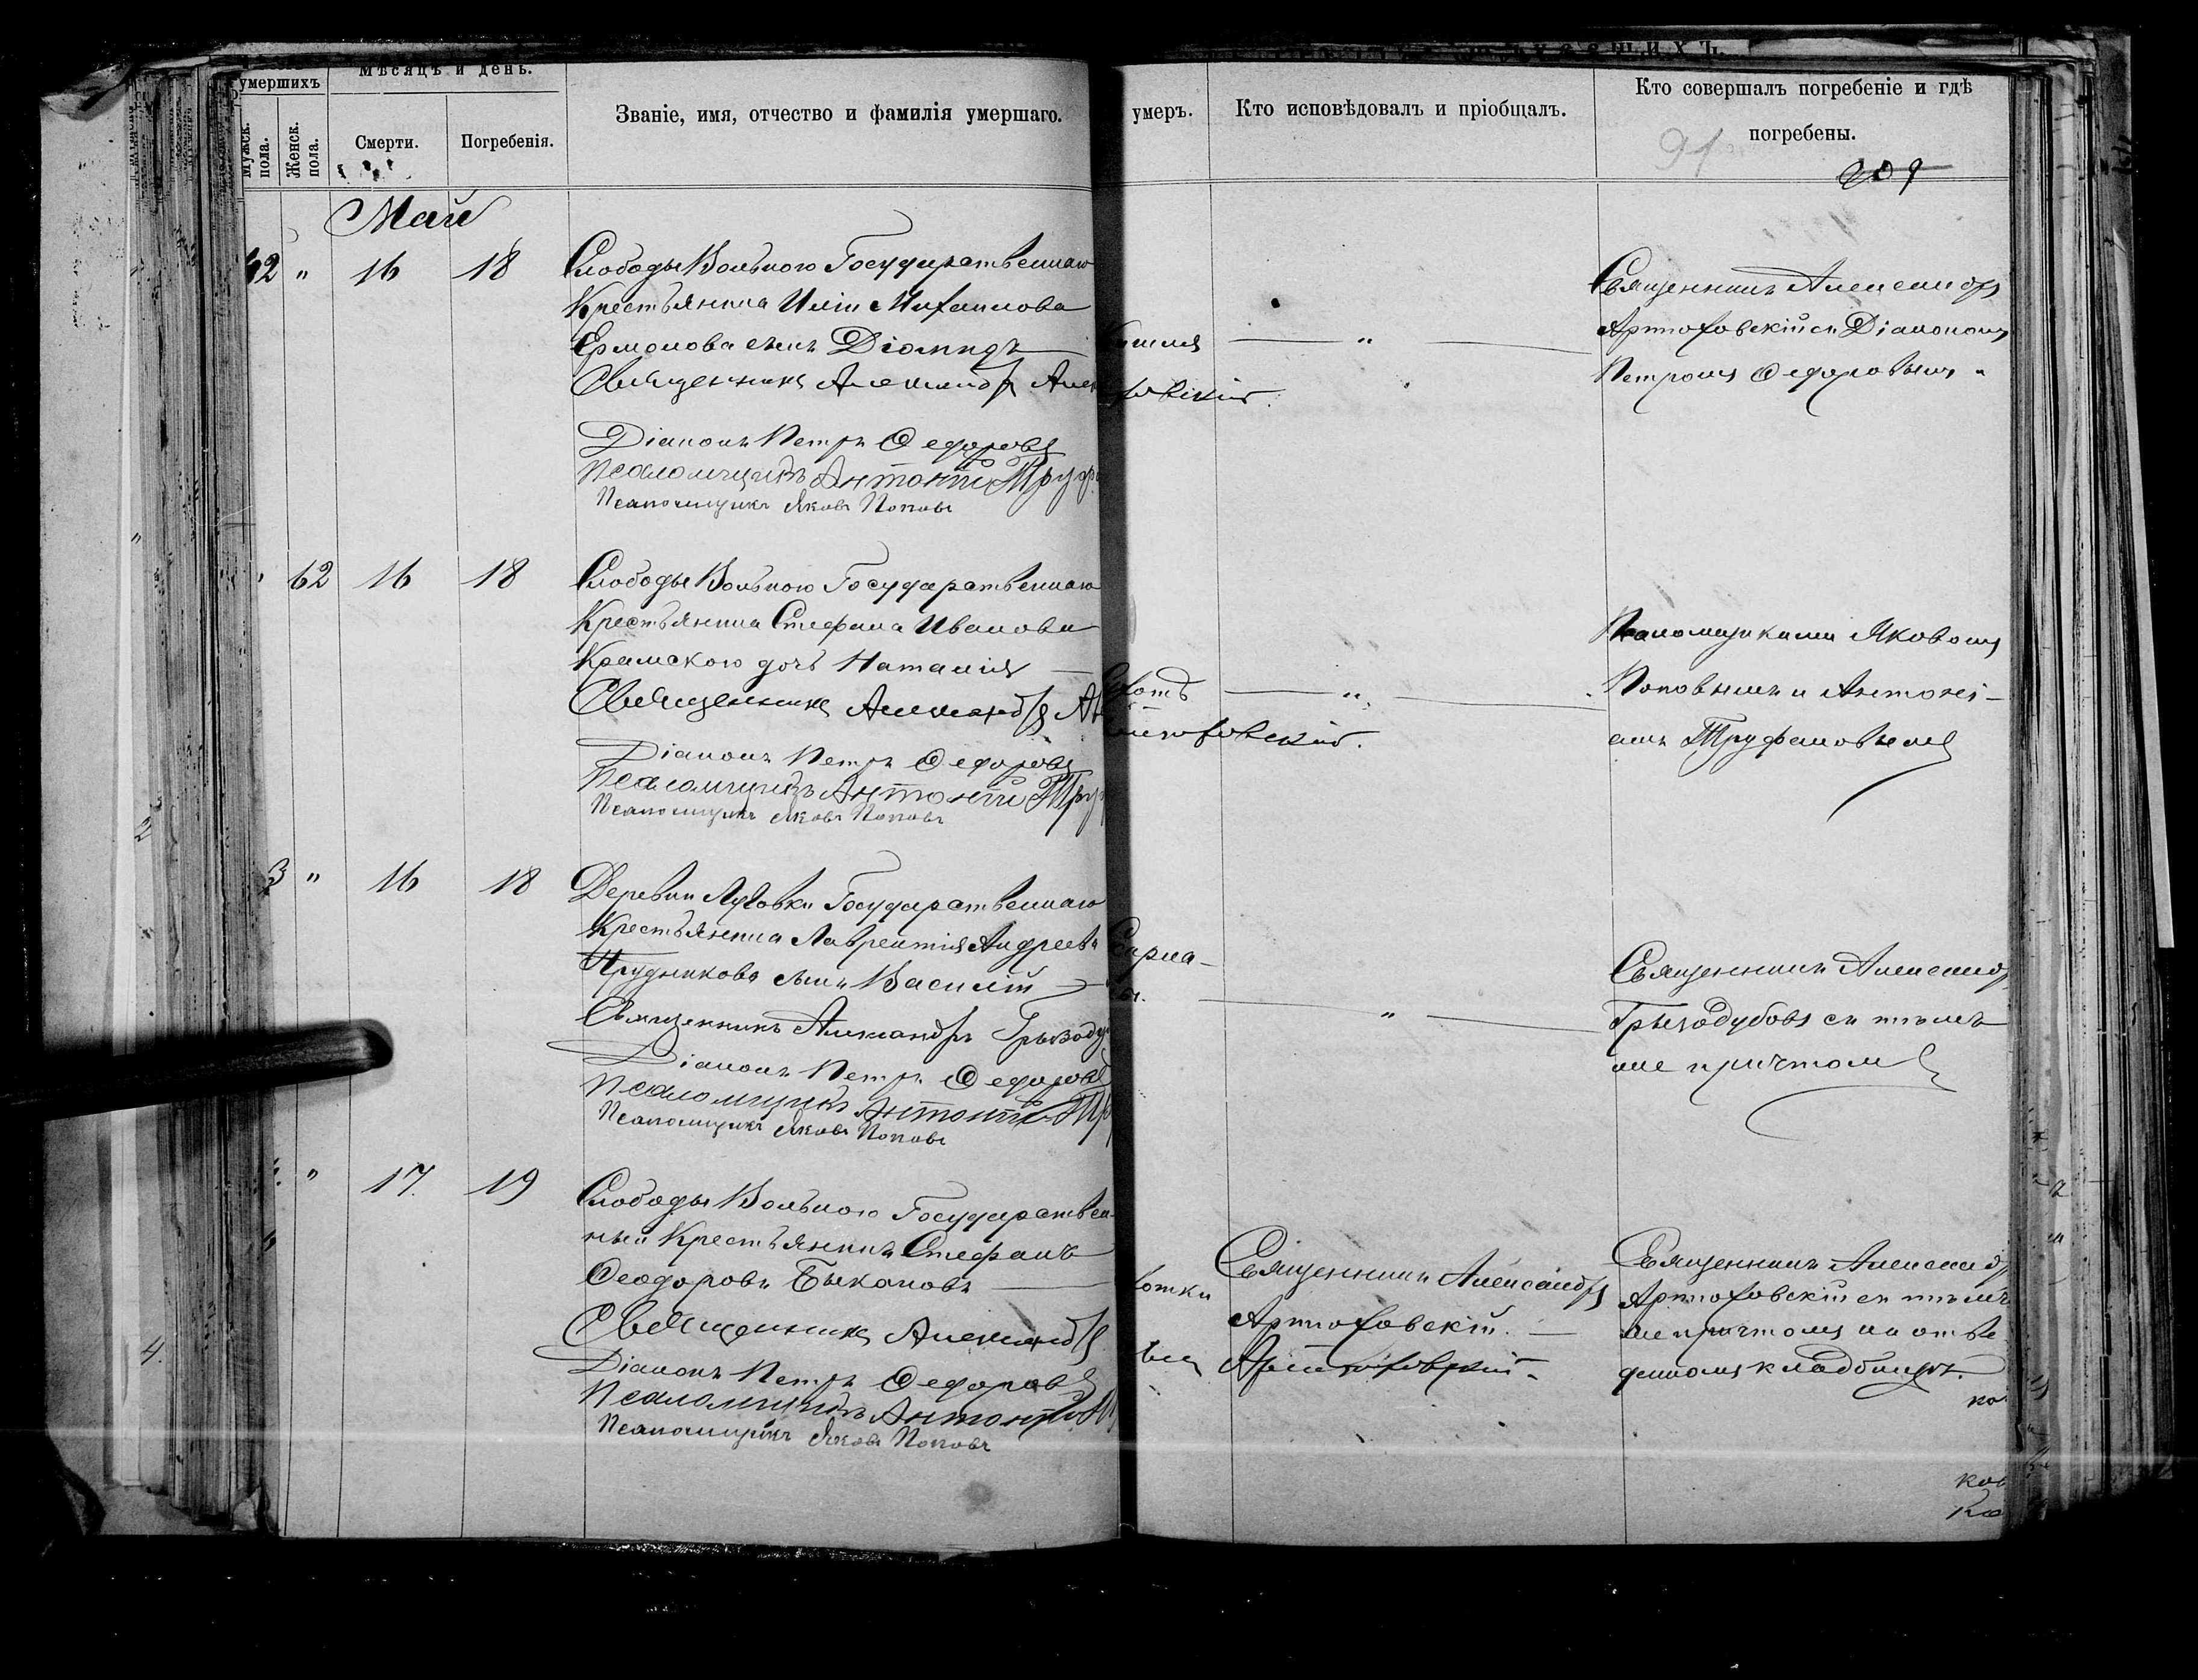 умершихъ
Мѣсяцъ и день.
Мужск. пола.
Женск. пола.
Смерти.
Погребенія.
Званіе, имя, отчество и фамилія умершаго.
умеръ.
Кто исповѣдовалъ и пріобщалъ.
Кто совершалъ погребеніе и гдѣ
погребены.
91
209
Май
62 " 16 18
Слободы Вольного Государственнаго
Крестьянина Иліи Михаилова
Ермолова сынъ Діомидъ
Священникъ Александръ
Діаконъ Петръ Ѳедоровъ
Псаломщикъ Антоній
Псаломщикъ Яковъ Поповъ
"
Священникъ Александръ
Артюховскій съ Діакономъ
Петромъ Ѳедоровымъ
62 16 18
Слободы Вольного Государственнаго
Крестьянина Стефана Иванова
Крамского дочь Наталія
Священникъ Александръ
Діаконъ Петръ Ѳедоровъ
Псаломщикъ Антоній
Псаломщикъ Яковъ Поповъ
"
Псаломщиками Яковомъ
Поповымъ и Антоні-
емъ Труфановымъ
3 " 16 18
Деревни Луговки Государственнаго
Крестьянина Лаврентія Андреева
Прудникова сынъ Василій
Священникъ Александръ
Діаконъ Петръ Ѳедоровъ
Псаломщикъ Антоній
Псаломщикъ Яковъ Поповъ
"
Священникъ Александръ
Грызодубовъ съ тѣмъ
же причтомъ
" 17. 19
Слободы Вольного Государствен-
ный Крестьянинъ Стефанъ
Ѳеодоровъ Быкановъ
Священникъ Александръ
Діаконъ Петръ Ѳедоровъ
Псаломщикъ Антоній
Псаломщикъ Яковъ Поповъ
Священникъ Александръ
Артюховскій.
Артюховскій
Священникъ Александръ
Артюховскій съ тѣмъ
же причтомъ на отве-
денномъ кладбищѣ.